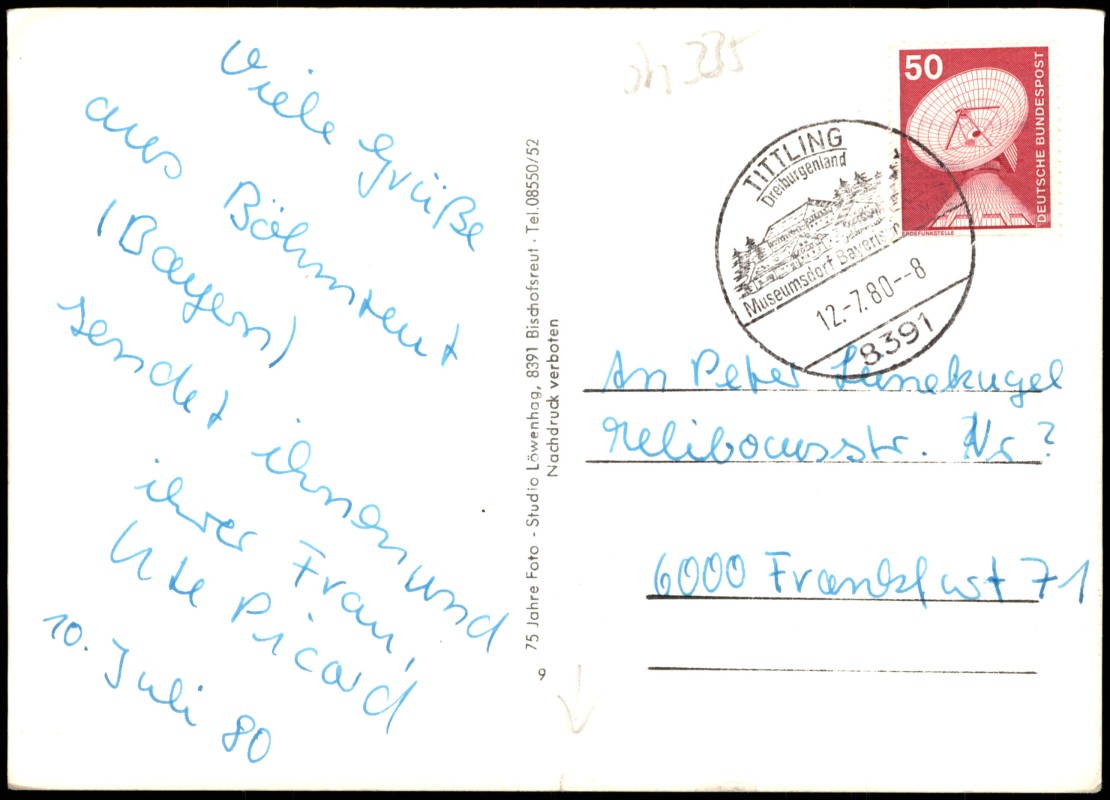 Viele Grüße
aus Böhmreut
(Bayern)
sendet ihnen und
ihrer Frau,
Ute Picard
10. Juli 80
75 Jahre Foto - Studio Löwenhag, 8391 Bischofsreut · Tel. 08550/52
Nachdruck verboten
9
50
DEUTSCHE BUNDESPOST
ERDEFUNKSTELLE
TITTLING
Dreiburgenland
Museumsdorf
12.-7.80--8
8391
An Peter Lünekugel
Melibocusstr. Nr ?
6000 Frankfurt 71